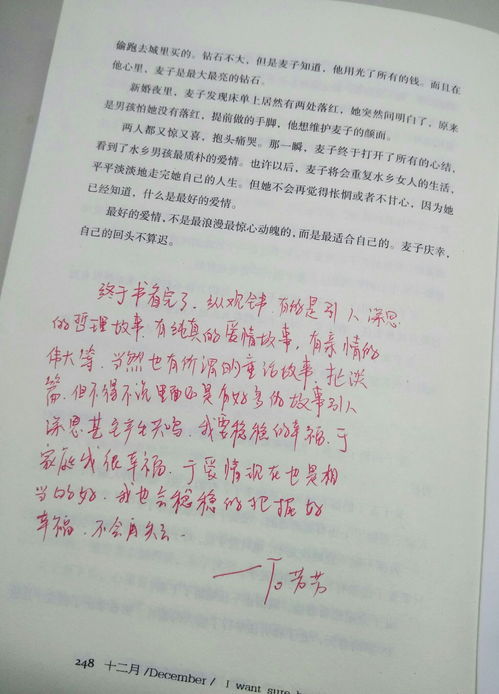 偷跑去城里买的。钻石不大，但是麦子知道，他用光了所有的钱。而且在
他心里，麦子是最大最亮的钻石。
新婚夜里，麦子发现床单上居然有两处落红，她突然间明白了，原来
是男孩怕她没有落红，提前做的手脚，他想维护麦子的颜面。
两人都又惊又喜，抱头痛哭。那一瞬，麦子终于打开了所有的心结，
看到了水乡男孩最质朴的爱情。也许以后，麦子将会重复水乡女人的生活，
平平淡淡地走完她自己的人生。但她不会再觉得怅惘或者不甘心，因为她
已经知道，什么是最好的爱情。
最好的爱情，不是最浪漫最惊心动魄的，而是最适合自己的。麦子庆幸，
自己的回头不算迟。
终于书看完了，纵观全书，有的是引人深思
的哲理故事，有纯真的爱情故事，有亲情的
伟大等，当然也有所谓的童话故事，扯淡
篇，但不得不说里面还是有好多的故事引人
深思甚至产生共鸣，我要稳稳的幸福，于
家庭我很幸福，于爱情现在也是相
当的好，我也会稳稳的把握好
幸福，不会再失去.
——To 芳芳
248 十二月 /December / I want sure